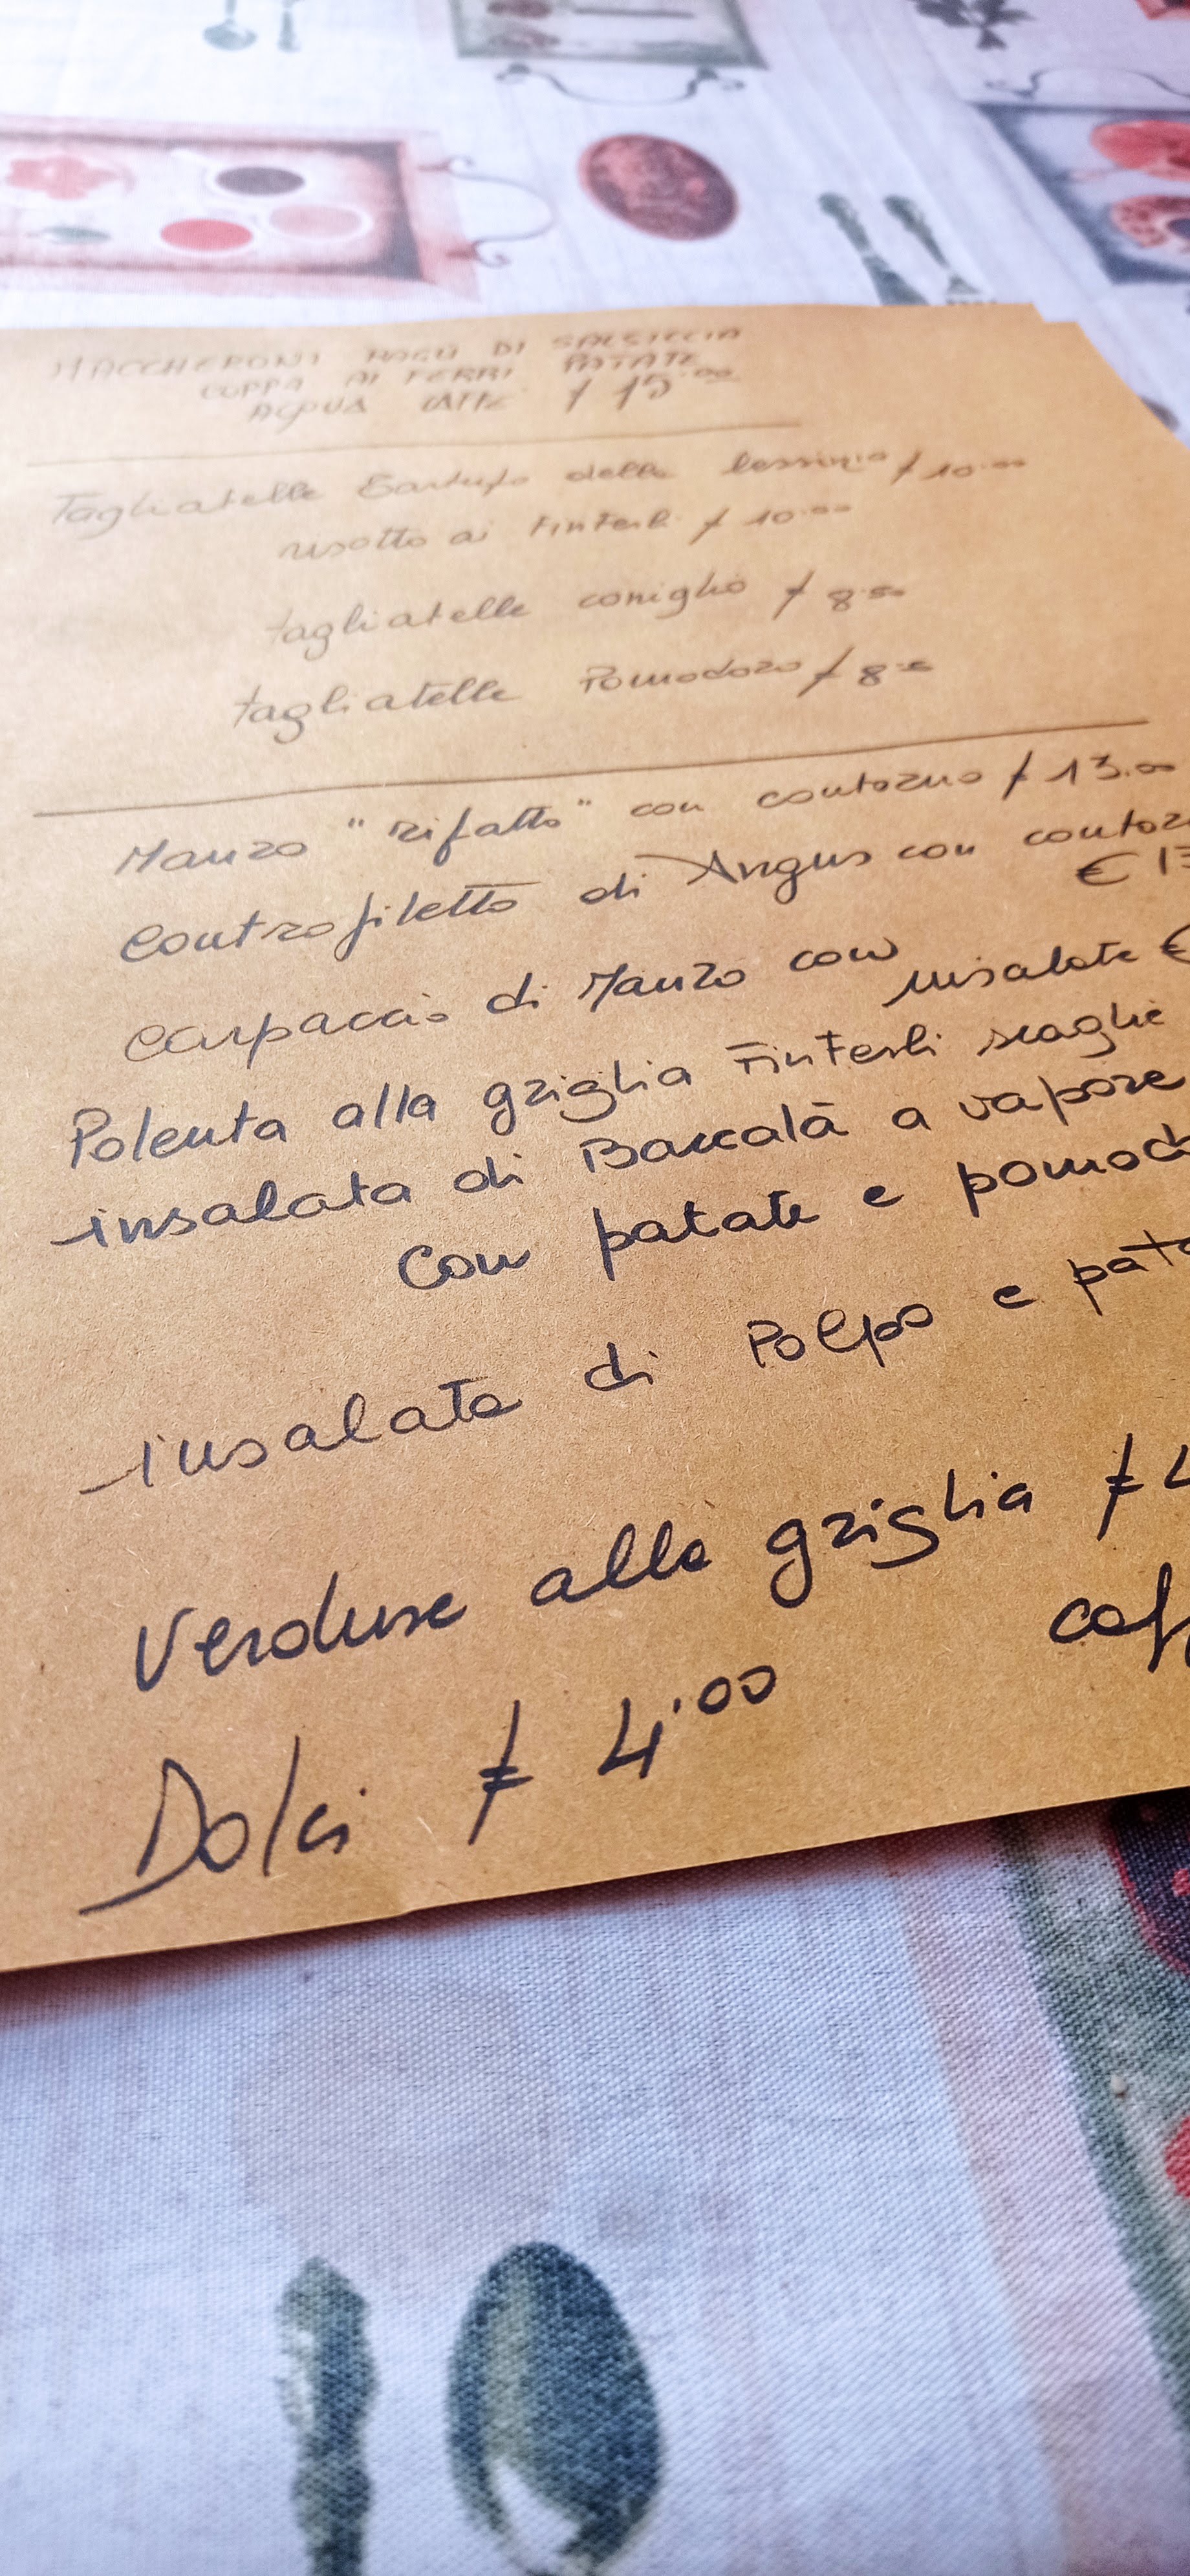 MACCHERONI RAGÙ DI SALSICCIA
COPPA AI FERRI PATATE
ACQUA CAFFE € 15.00
Tagliatelle tartufo della lessinia € 10.00
risotto ai Finferli € 10.00
tagliatelle coniglio € 8.00
tagliatelle Pomodoro € 8.00
Manzo "rifatto" con contorno € 13.00
Controfiletto di Angus con contor
€ 13
Carpaccio di Manzo con
insalata €
Polenta alla griglia Finferli scaglie
insalata di Baccalà a vapore
con patate e pomod
insalata di Polpo e pata
Verdure alla griglia € 4
caf
Dolci € 4.00